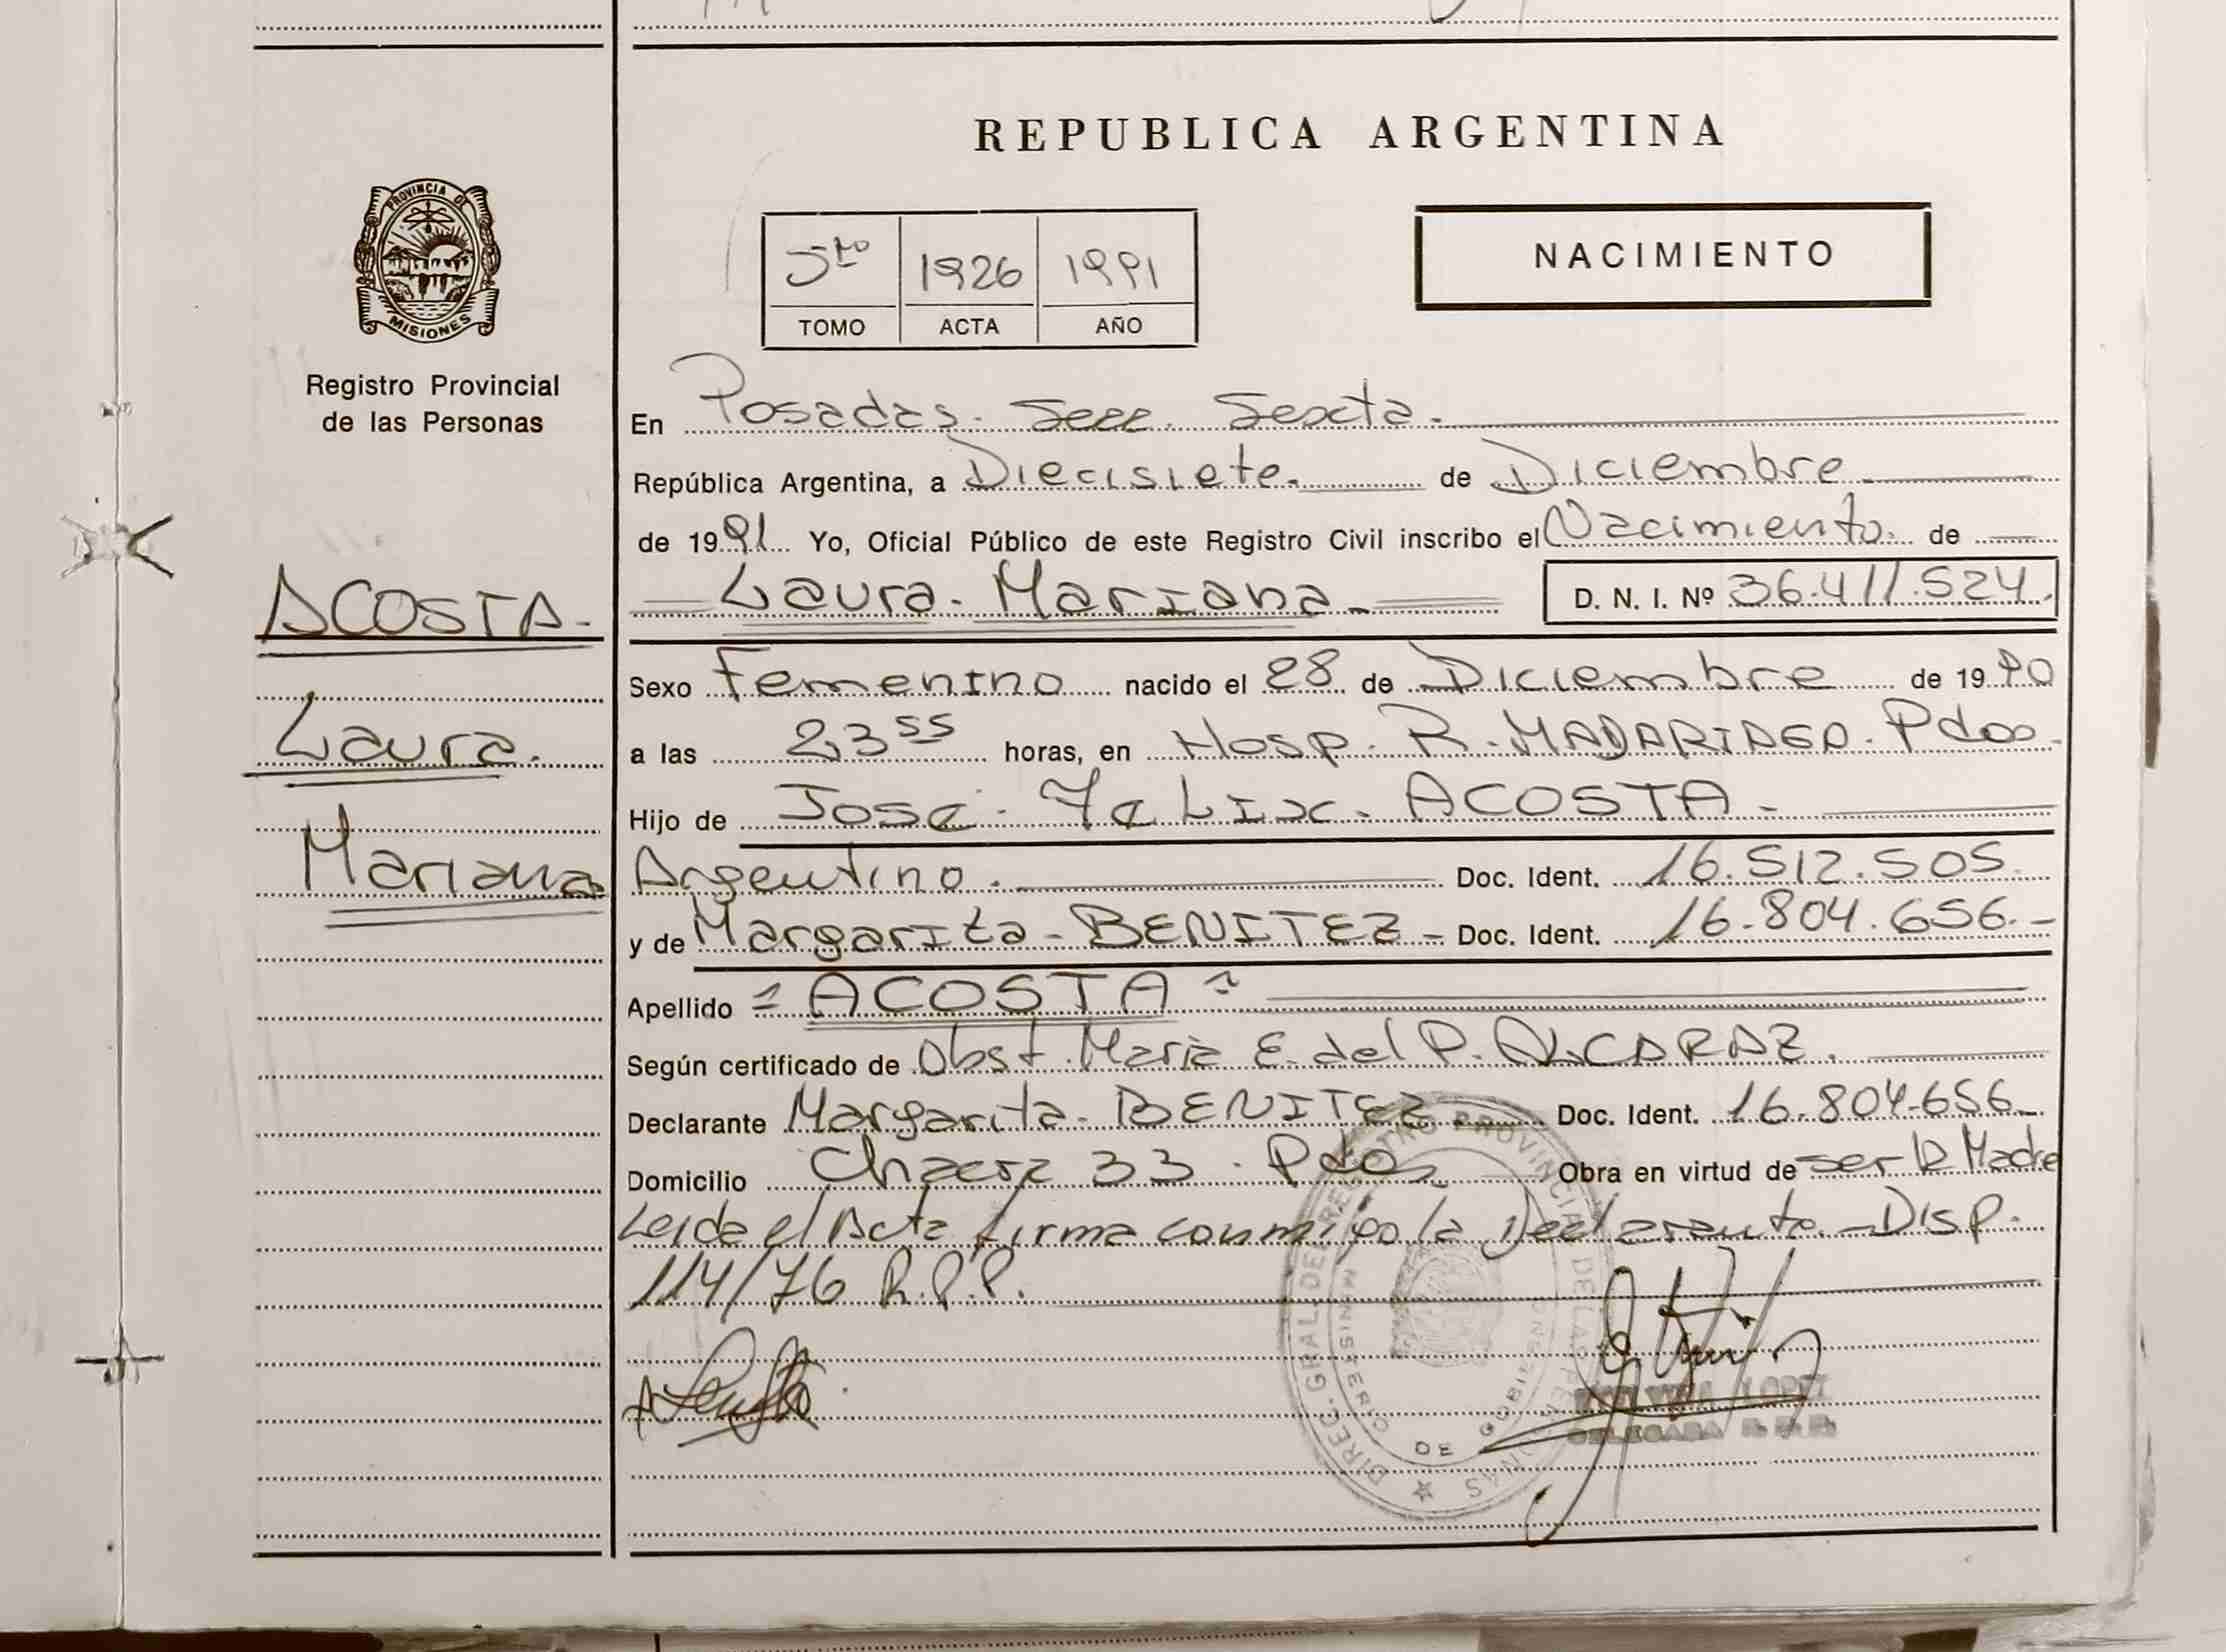 REPUBLICA ARGENTINA
PROVINCIA DE
MISIONES
Registro Provincial
de las Personas
5to 1926 1991
TOMO ACTA AÑO
NACIMIENTO
En Posadas. Secc. Sexta.
República Argentina, a Diecisiete. de Diciembre
de 1991 Yo, Oficial Público de este Registro Civil inscribo el Nacimiento. de
Laura. Mariana D. N. I. Nº 36.411.524.
ACOSTA.
Laura.
Mariana
Sexo Femenino nacido el 28 de Diciembre de 1990
a las 23 55 horas, en Hosp. R. MADARIAGA. Pdas.
Hijo de José. Felix. ACOSTA
Argentino. Doc. Ident. 16.512.505.
y de Margarita BENITEZ Doc. Ident. 16.804.656.
Apellido = ACOSTA =
Según certificado de Obst. María E. del P. ALCARAZ.
Declarante Margarita. BENITEZ Doc. Ident. 16.804.656
Domicilio Chacra 33. Pdas Obra en virtud de ser la Madre
Leida el Acta firma conmigo la Declarante. Disp.
114/76 R.P.P.
DIREC. GRAL. DEL REGISTRO PROVINCIAL DE LAS PERSONAS
MINISTERIO DE GOBIERNO
LOPEZ
DELEGADA R.P.P.